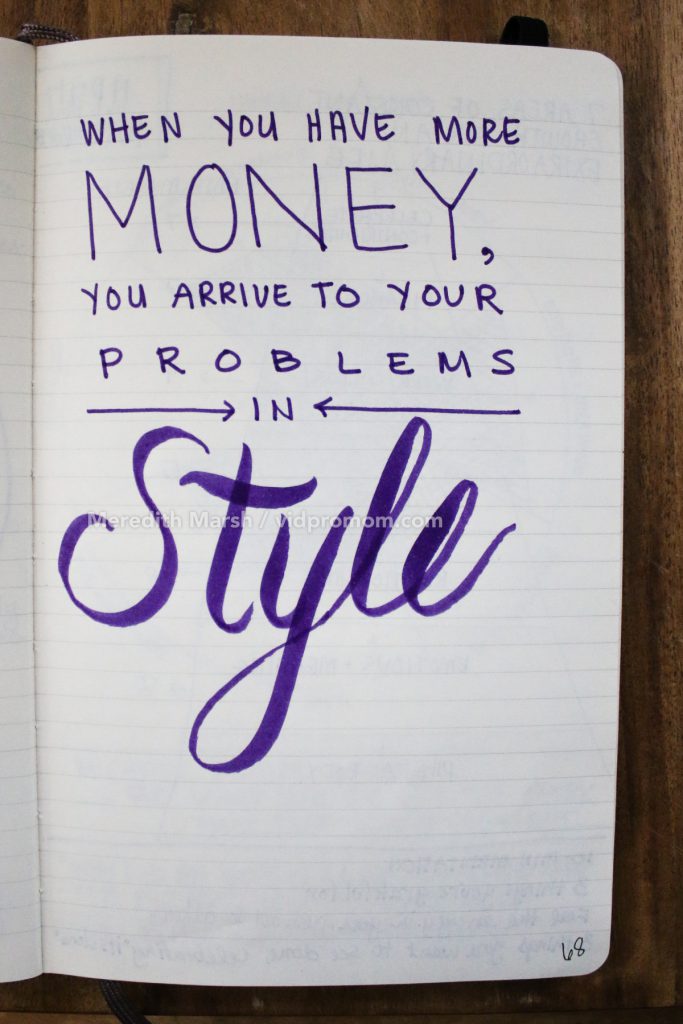 WHEN YOU HAVE MORE
MONEY,
YOU ARRIVE TO YOUR
PROBLEMS
IN
Style
Meredith Marsh / vidpromom.com
68